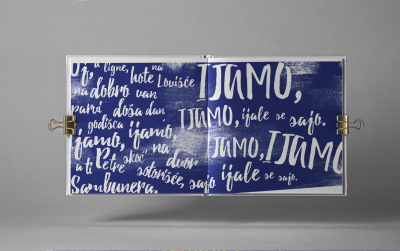 a ligne, hote na
na dobro van Louišće
parvi doša dan
godišća
ijamo, ijamo,
a ti Petre skoč na dvor
Sambunera. sotorišće, sajo
IJAMO,
IJAMO, ijale se sajo.
IJAMO, IJAMO
ijale se sajo.